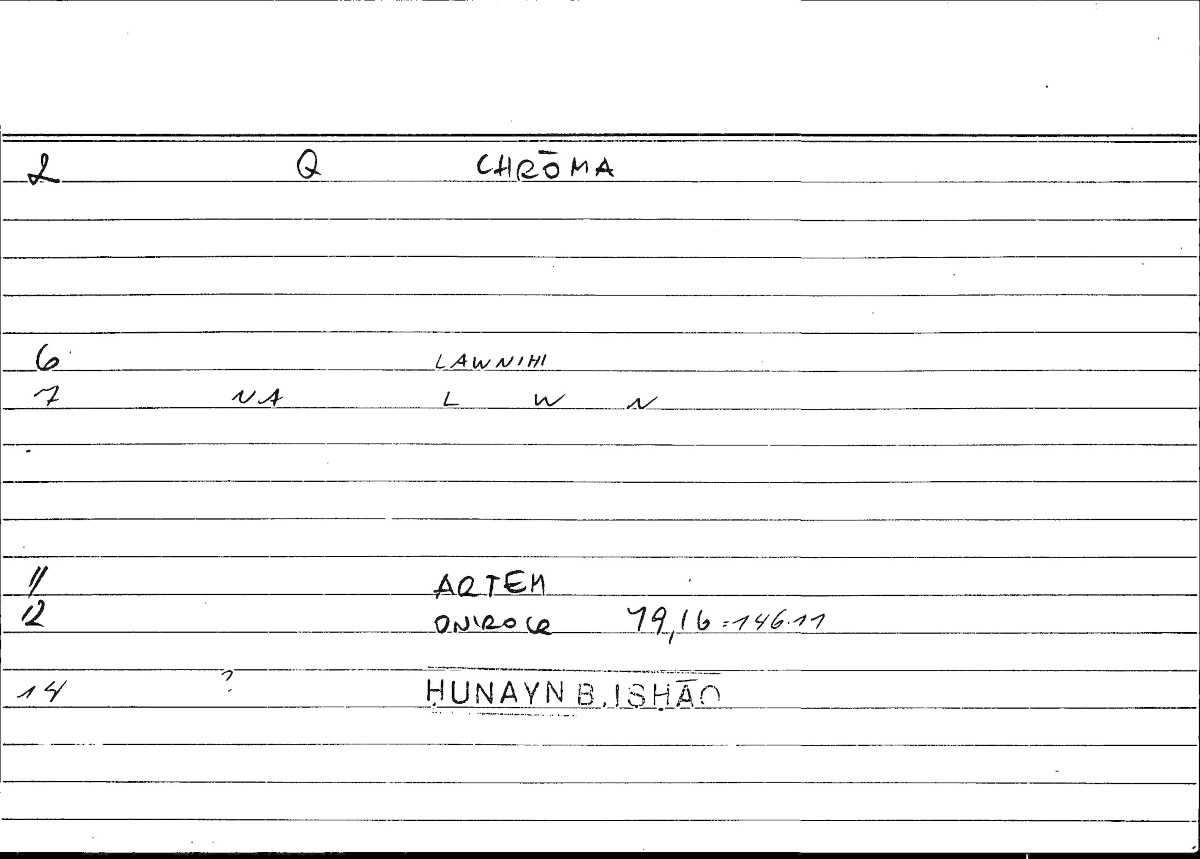 2 Q CHRŌMA
6 LAWNIHI
7 NA L W N
11 ARTEM
12 ONIROCR 79,16=146.11
14 ? ḤUNAYN B. ISḤĀQ